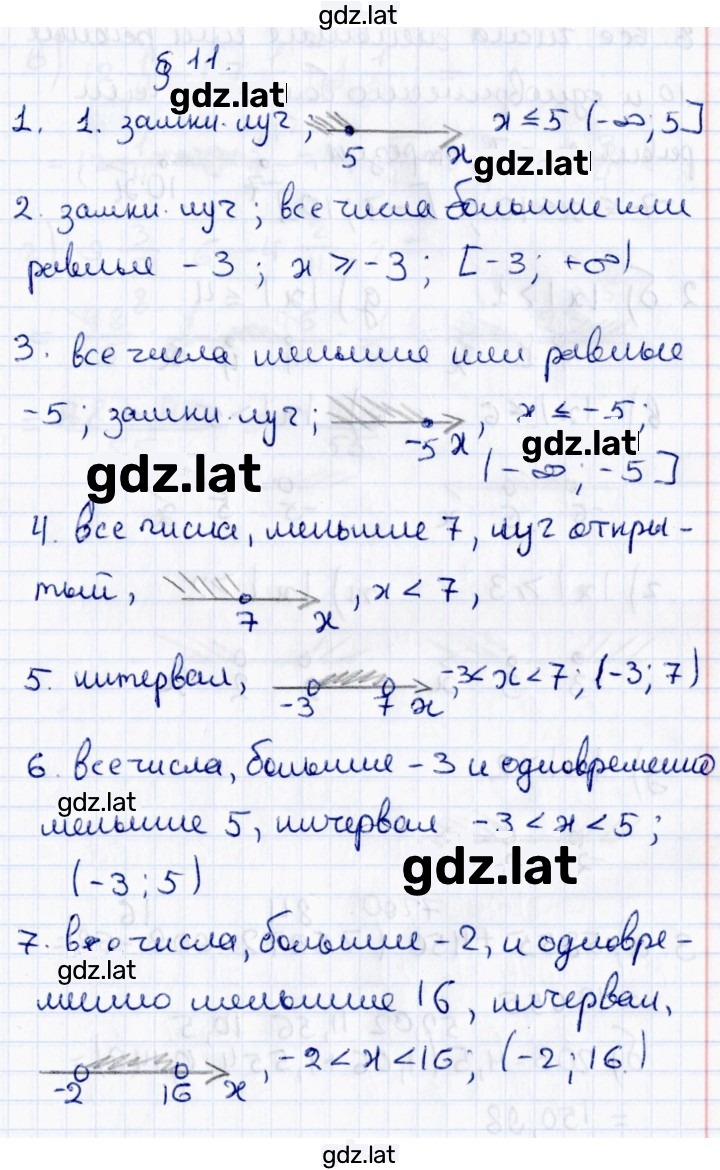 gdz.lat
§ 11.
gdz.lat
1. 1. замкн. луч, 5 x x ≤ 5 (-∞; 5]
gdz.lat
2. замкн. луч; все числа большие или
равные -3; x ≥ -3; [-3; +∞)
3. все числа меньшие или равные
-5; замкн. луч; -5 x, x ≤ -5;
gdz.lat
gdz.lat
(-∞; -5]
4. все числа, меньшие 7, луч откры-
тый, 7 x, x < 7,
5. интервал, -3 7 x, -3 < x < 7; (-3; 7)
6. все числа, большие -3 и одновременно
gdz.lat
меньшие 5, интервал -3 < x < 5;
gdz.lat
(-3; 5)
7. все числа, большие -2, и одновре-
gdz.lat
менно меньшие 16, интервал,
-2 16 x, -2 < x < 16; (-2; 16)
gdz.lat